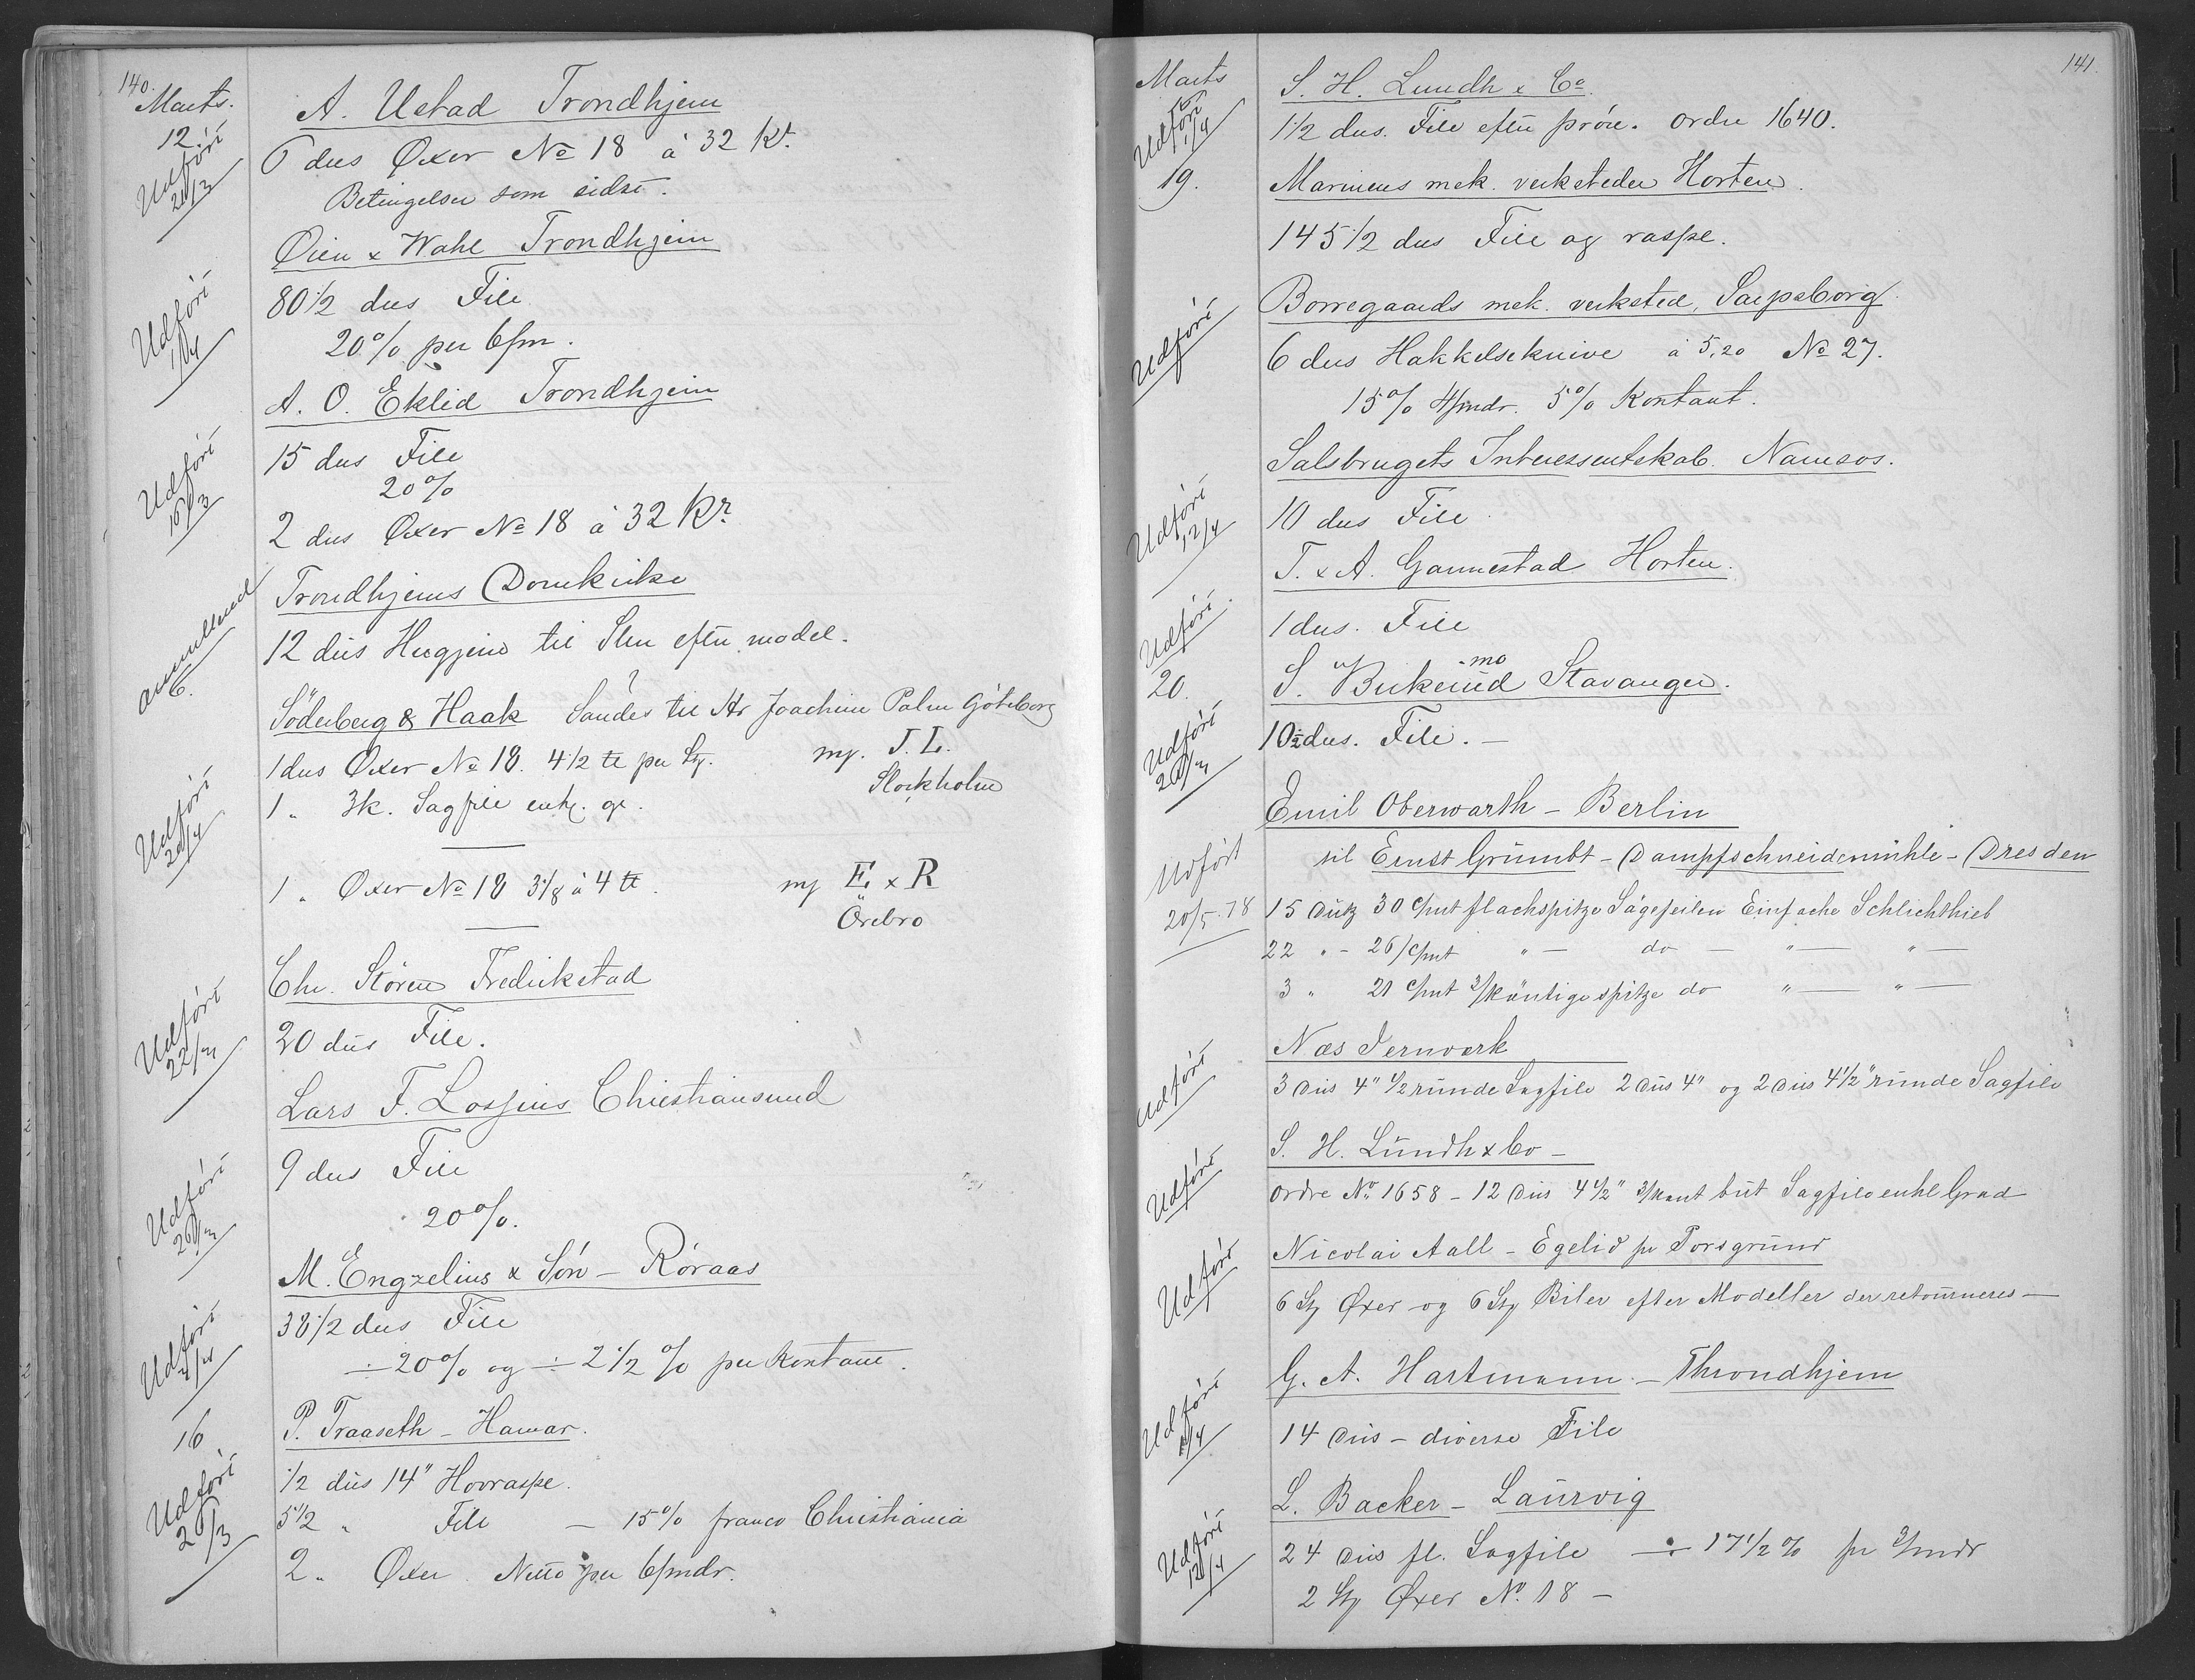 140.
Marts.
12.
A. Ustad Trondhjem
Udført 21/3
6 dus Øxer No 18 à 32 Kr.
Betingelser som sidst.
Øien & Wahl Trondhjem
Udført 1/4
80 1/2 dus File
20% per 6/m.
A. O. Eklid Trondhjem
Udført 16/3
15 dus File
20%
2 dus Øxer No 18 à 32 Kr.
Trondhjems Domkirke
6.
12 dus Hugjern til Sten efter model.
Söderberg & Haak Sendes til Hr Joachim Palm Göteborg
Udført 20/4
1 dus Øxer No 18. 4 1/2 ℔ per Stg. mp. J. L.
Stockholm
1 " 3k. Sagfile enk. gr.
1 " Øxer No 18 3 1/8 à 4 ℔. mp E & R
Örebro
Chr. Støren Fredrikstad
Udført 22/3
20 dus File.
Lars F. Lossius Christiansund
Udført 26/3
9 dus File
20%.
M. Engzelius & Søn - Røraas
Udført 4/4
38 1/2 dus File
÷ 20% og ÷ 2 1/2 % per Kontant.
16
P. Traaseth - Hamar.
Udført 26/3
1/2 dus 14" Hovraspe.
5 1/2 " File - 15% franco Christiania
2 " Øxer Netto per 6/mdr.
141.
Marts
S. H. Lundh & Co
Udført 1/4
1 1/2 dus. File efter prøve. ordre 1640.
19.
Marinens mek. verksteder Horten.
145 1/2 dus File og raspe.
Borregaards mek. verksted, Sarpsborg.
Udført
6 dus Hakkelseknive à 5,20 No 27.
15% 4/mdr. 5% Kontant.
Salsbrugets Interessentskab. Namsos.
Udført 12/4
10 dus File.
T. & A. Gannestad Horten.
Udført
1 dus. File
20.
S. Birkeland Stavanger.
Udført 26/3
10 1/2 dus. File. -
Emil Oberwarth - Berlin
Udført 20/5.78
til Ernst Grumbt - Dampfschneidemühle - Dresden
15 Dutz 30 c/mt flachspitze Sägefeilen Einfache Schlichthieb
22 " - 26 c/mt " - do - " - " -
3 " 21 c/mt 3/kantige spitze do " - " -
Næs Jernværk
Udført
3 Dus 4" 1/2 runde Sagfile 2 Dus 4" og 2 Dus 4 1/2" runde Sagfile
S. H. Lundh & Co -
Udført
Ordre No 1658 - 12 Dus 4 1/2" 3/kant but Sagfile enkel Grad
Nicolai Aall - Egelid pr Porsgrund
Udført
6 Stg Øxer og 6 Stg Biler efter Modeller der retourneres -
G. A. Hartmann. - Throndhjem
Udført 6/4
14 Dus - diverse File
L. Backer - Laurvig
Udført 12/4
24 Dus fl. Sagfile ÷ 17 1/2 % pr 3/mdr
2 Stg Øxer No. 18 -